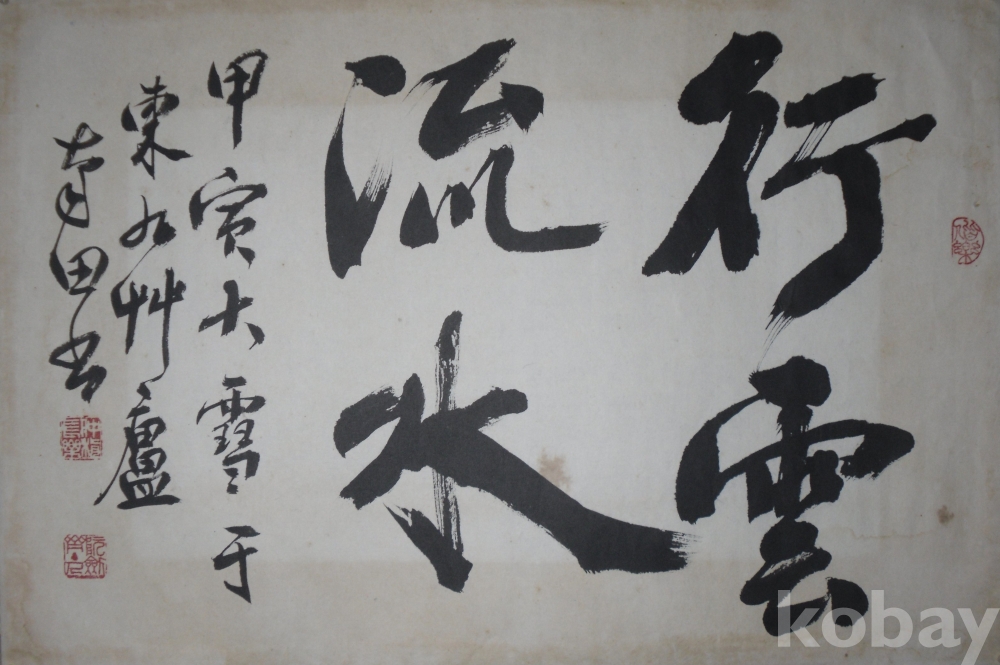 行雲
流水
甲寅大雪于
東九艸廬
田書
kobay